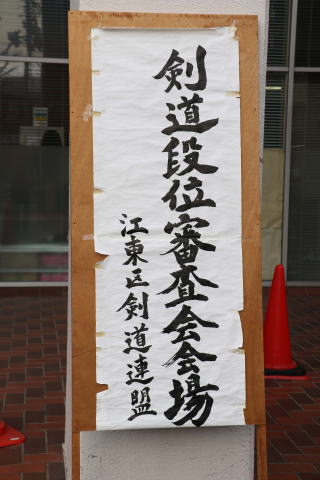 剣道段位審査会会場
江東区剣道連盟